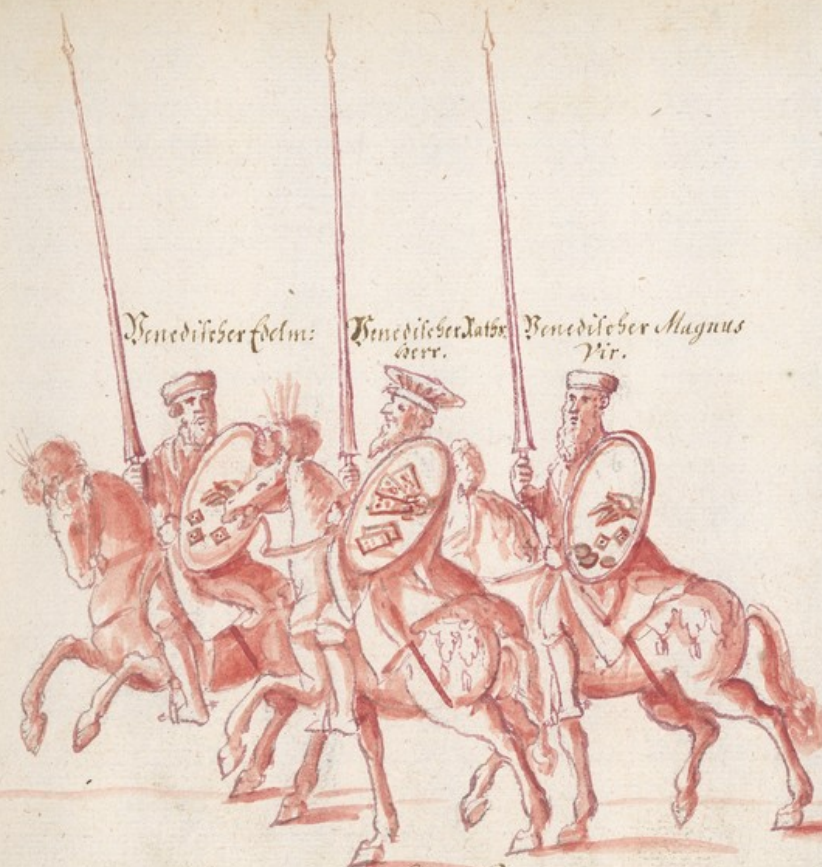 Venedischer Edelm:
Venedischer Raths
Herr.
Venedischer Magnus
Vir.